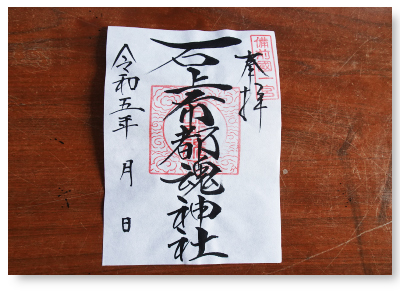 奉拝
備前國一宮
石上布都魂神社
令和五年 月 日